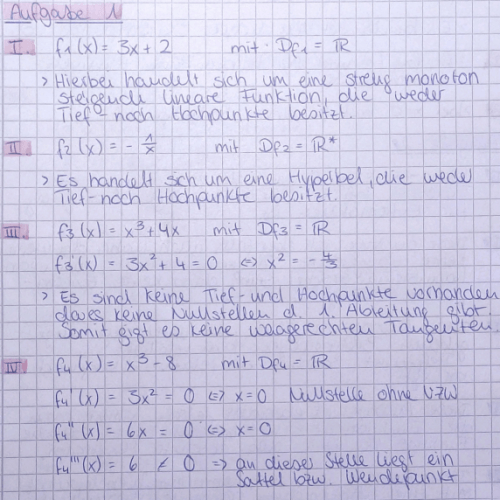 Aufgabe 1
I. f1(x) = 3x + 2 mit Df1 = ℝ
> Hierbei handelt sich um eine streng monoton
steigende lineare Funktion, die weder
Tief- noch Hochpunkte besitzt.
II. f2(x) = - 1/x mit Df2 = ℝ*
> Es handelt sich um eine Hyperbel, die wede
Tief- noch Hochpunkte besitzt.
III. f3(x) = x³ + 4x mit Df3 = ℝ
f3'(x) = 3x² + 4 = 0 ⇔ x² = - 4/3
> Es sind keine Tief- und Hochpunkte vorhanden
da es keine Nullstellen d. 1. Ableitung gibt.
Somit gigt es keine waagerechten Tangenten.
IV f4(x) = x³ - 8 mit Df4 = ℝ
f4'(x) = 3x² = 0 ⇔ x = 0 Nullstelle ohne VZW
f4''(x) = 6x = 0 ⇔ x = 0
f4'''(x) = 6 ≠ 0 ⇒ an dieses Stelle liegt ein
Sattel bzw. Wendepunkt